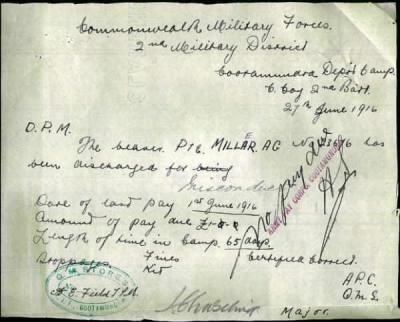 Commonwealth Military Forces.
2nd Military District
Cootamundra Depot Camp.
C. Coy 2nd Batt.
27th June 1916
D.P.M.
The bearer Pte. MILLAR. AG No has
E
been discharged for being
Misconduct
Date of last pay 1st June 1916
Amount of pay due £1-0-0
Length of time in Camp. 65 days
Stoppages Fines Certified Correct.
Kit
no pay due
Q M STORES
COOTAMUNDRA
A.P.C.
Q.M.S.
Major.